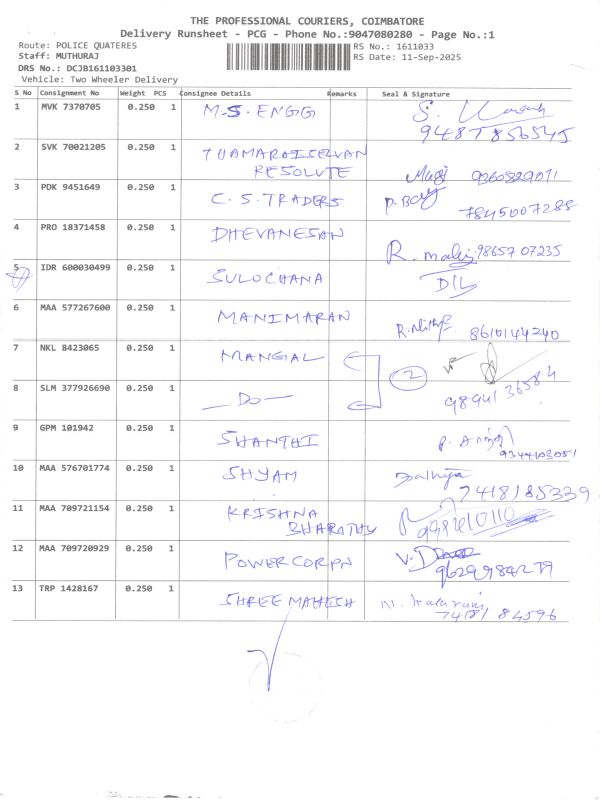 THE PROFESSIONAL COURIERS, COIMBATORE
Delivery Runsheet - PCG - Phone No.:9047080280 - Page No.:1
Route: POLICE QUATERES RS No.: 1611033
Staff: MUTHURAJ RS Date: 11-Sep-2025
DRS No.: DCJB161103301
Vehicle: Two Wheeler Delivery
S No Consignment No Weight PCS Consignee Details Remarks Seal & Signature
1 MVK 7370705 0.250 1 M.S. ENGG S.
9487856545
2 SVK 70021205 0.250 1 THAMARAISELVAN
RESOLUTE
3 PDK 9451649 0.250 1 C.S. TRADERS
7845007288
4 PRO 18371458 0.250 1 DHEVANESAN R. 98657 07235
5 IDR 600030499 0.250 1 SULOCHANA D/L
6 MAA 577267600 0.250 1 MANIMARAN 8610144240
7 NKL 8423065 0.250 1 MANGAL 2
8 SLM 377926690 0.250 1 — Do — 9894136584
9 GPM 101942 0.250 1 SHANTHI 9344103051
10 MAA 576701774 0.250 1 SHYAM 7418185339
11 MAA 709721154 0.250 1 KRISHNA
BHARATHY
12 MAA 709720929 0.250 1 POWERCORPN
9629984279
13 TRP 1428167 0.250 1 SHREE MAHESH
74181 84596